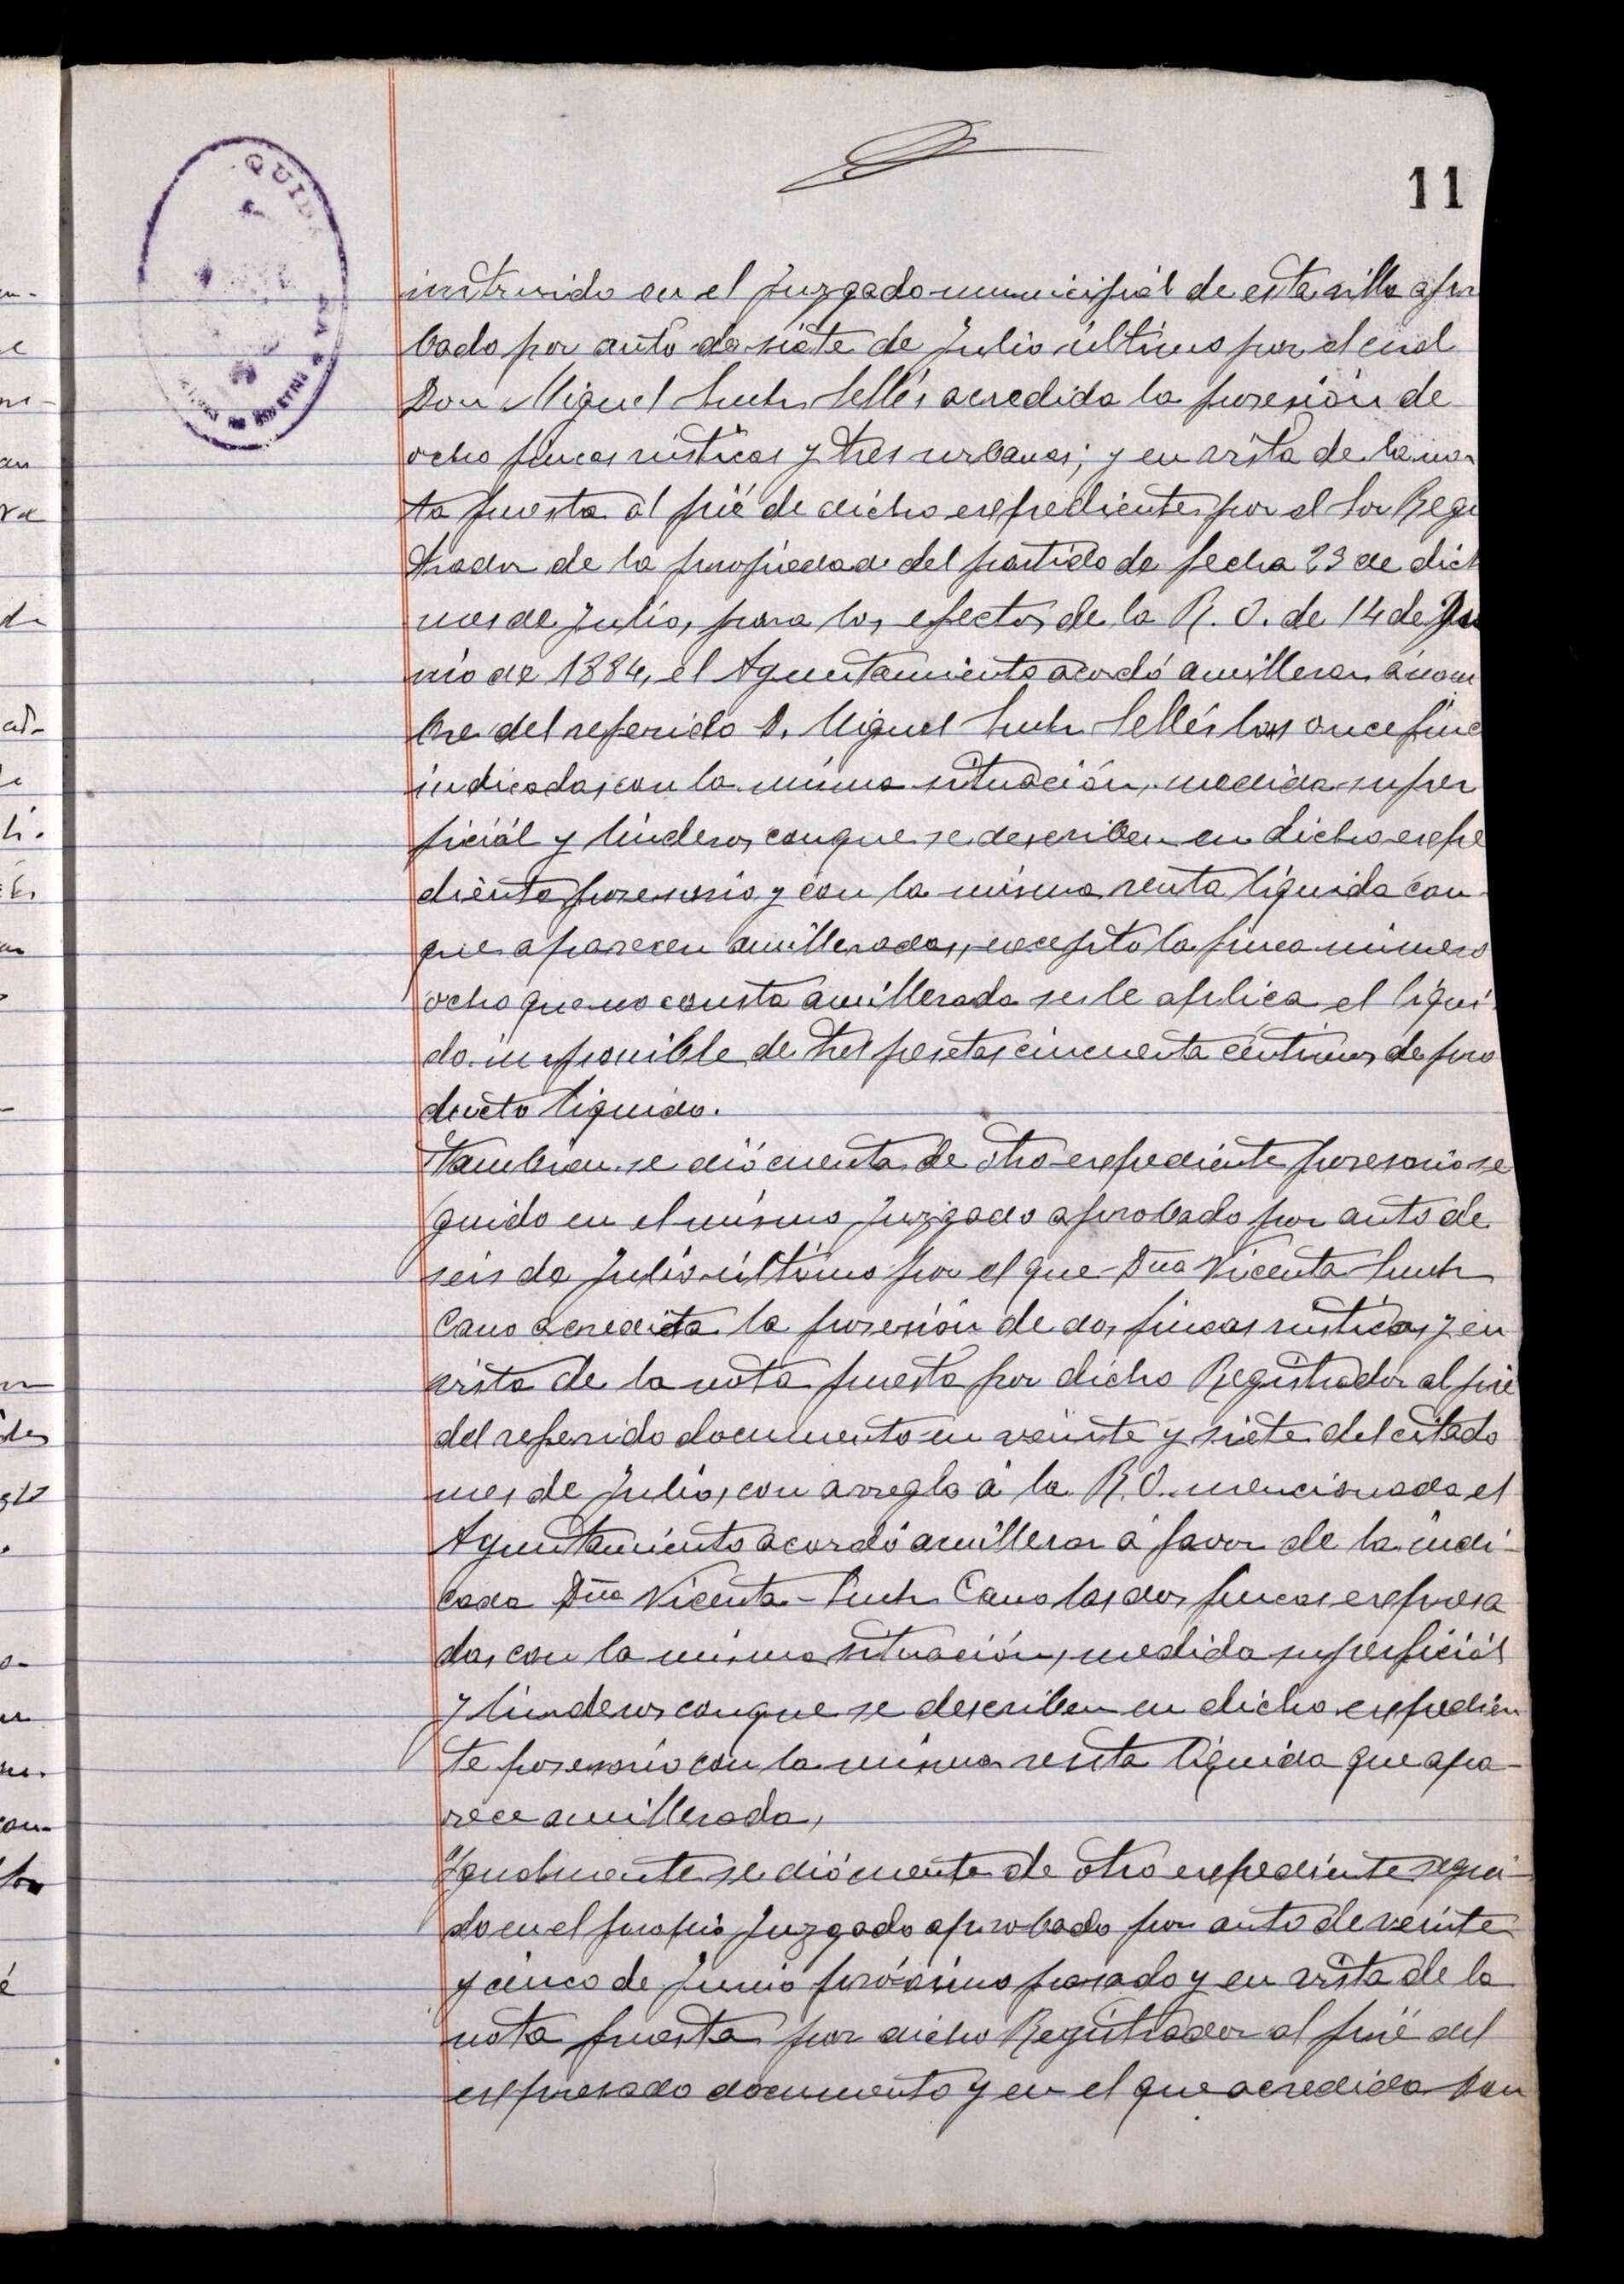 11
instruido en el Juzgado municipal de esta villa apro
bado por auto de siete de Julio último por el cual
Don Miguel Such Sellés acredida la posesión de
ocho fincas rústicas y tres urbanas; y en vista de la no-
ta puesta al pié de dicho espediente por el Sor Regis
trador de la propiedad del partido de fecha 23 de dicho
mes de Julio, para los efectos de la R. O. de 14 de Ju
nio de 1884, el Ayuntamiento acordó amillerar á nom
bre del referido D. Miguel Such Sellés las once finc
indicadas con la misma situación, medida super
ficiál y linderos con que se describen en dicho espe
diente posesorio y con la misma renta líquida con
que aparecen amilleradas, escepto la finca número
ocho que no consta amillerada se le aplica el líqui
do imponible de tres pesetas cincuenta céntimos de pro
ducto líquido.
Tambien se dió cuenta de otro espediente posesorio se
guido en el mismo Juzgado aprobado por auto de
seis de Julio último por el que Dña Vicenta Such
Cano acredita la posesión de dos fincas rústicas y en
vista de la nota puesta por dicho Registrador al pié
del referido documento en veinte y siete del citado
mes de Julio, con arreglo á la R. O. mencionada el
Ayuntamiento acordó amillerar á favor de la indi-
cada Dña Vicenta Such Cano las dos fincas espresa
das con la misma situación, medida superficiál
y linderos con que se describen en dicho espedien
te posesorio con la misma renta líquida que apa-
rece amillerada,
Ygualmente se dió cuenta de otro espediente segui-
do en el propio Juzgado aprobado por auto de veinte
y cinco de Junio próximo pasado y en vista de la
nota puesta por dicho Registrador al pié del
espresado documento y en el que acredida Don